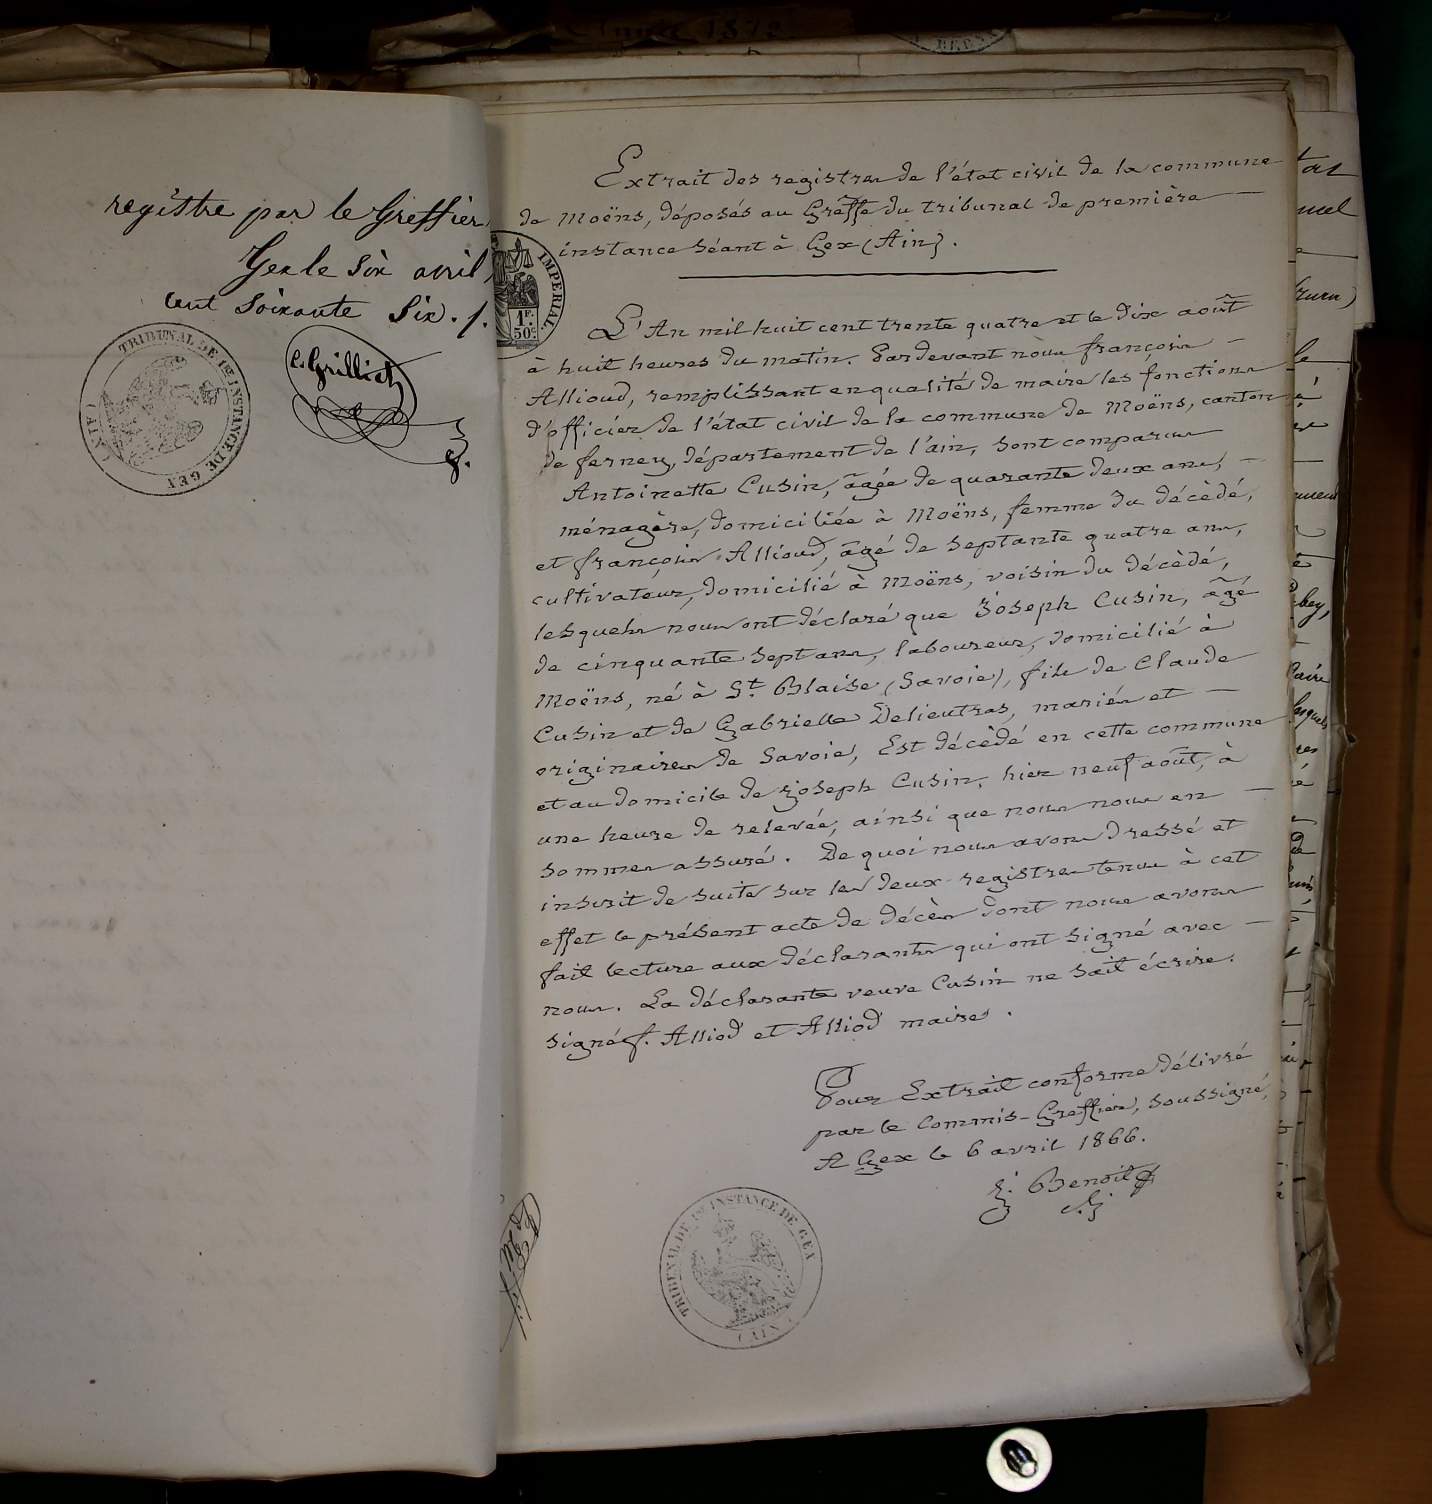 Année 1872
registre par le Greffier
Gex le Six avril
cent soixante Six . /.
TRIBUNAL DE 1RE INSTANCE DE GEX
(AIN)
Extrait des registres de l'état civil de la commune
de Moëns, déposés au Greffe du tribunal de première —
instance séant à Gex (Ain).
IMPERIAL.
1F.
50C.
L'An mil huit cent trente quatre et le dix août
à huit heures du matin. Pardevant nous françois —
Allioud, remplissant en qualité de maire les fonctions
d'officier de l'état civil de la commune de Moëns, canton
de ferney, département de l'ain, sont comparus
Antoinette Cusin, âgée de quarante deux ans, —
ménagère, domiciliée à Moëns, femme du décèdé,
et françois Allioud, âgé de septante quatre ans,
cultivateur, domicilié à Moëns, voisin du décèdé,
lesquels nous ont déclaré que Joseph Cusin, âgé
de cinquante sept ans, laboureur, domicilié à
Moëns, né à St. Blaise (Savoie), fils de Claude
Cusin et de Gabrielle Delieutras, mariés et —
originaires de Savoie, Est décèdé en cette commune
et au domicile de Joseph Cusin, hier neuf août, à
une heure de relevée, ainsi que nous nous en —
sommes assuré. De quoi nous avons dressé et
inscrit de suite sur les deux registres tenus à cet
effet le présent acte de décès dont nous avons
fait lecture aux déclarants qui ont signé avec —
nous. La déclarante veuve Cusin ne sait écrire.
signé f. Alliod et Alliod maire.
Pour Extrait conforme délivré
par le Commis-Greffier, soussigné,
A Gex le 6 avril 1866.
J. Benoit
TRIBUNAL DE 1RE INSTANCE DE GEX
(AIN)